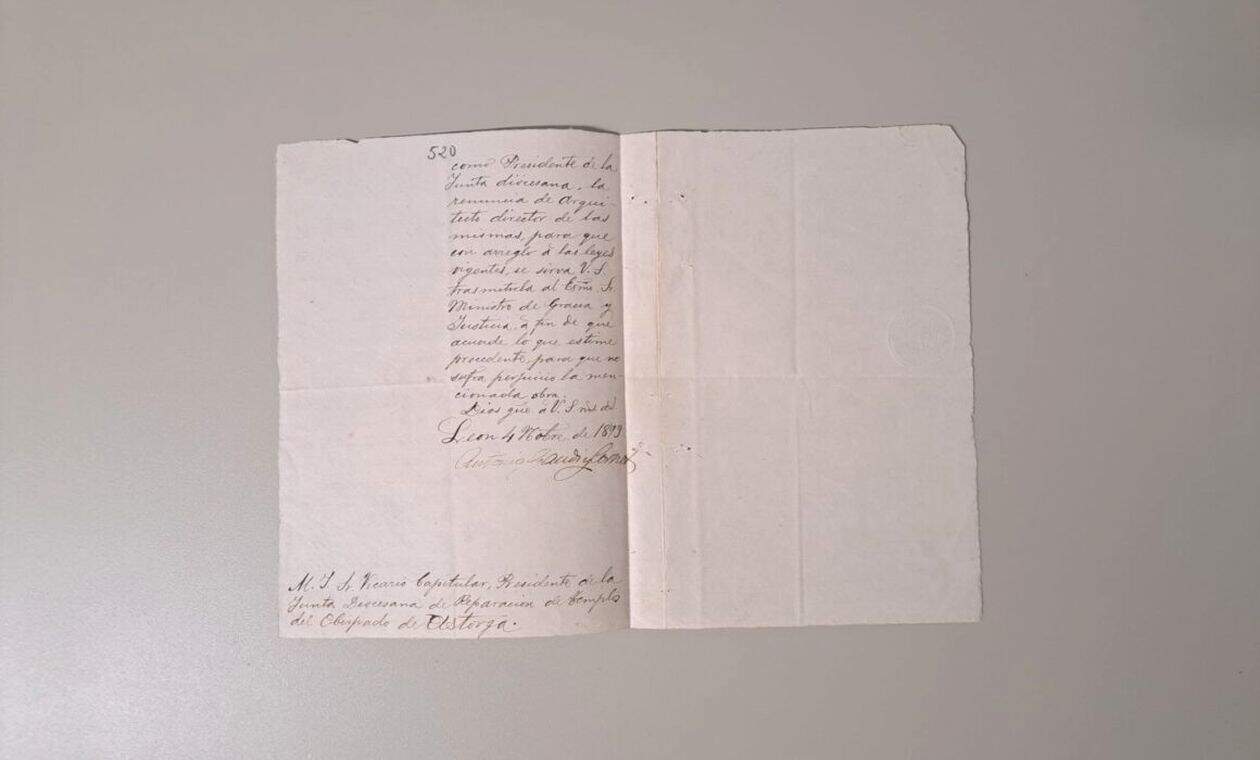 520
como Presidente de la
Junta diocesana, la
renuncia de Arqui-
tecto director de las
mismas, para que
con arreglo á las leyes
vigentes, se sirva V. S.
trasmitirla al Exmo. Sr.
Ministro de Gracia y
Justicia, á fin de que
acuerde lo que estime
procedente, para que no
sufra perjuicio la men-
cionada obra.
Dios gue á V. S. ms. as.
Leon 4 Nobre de 1893
Antonio Gaudi y Cornet
M. I. Sr. Vicario Capitular, Presidente de la
Junta Diocesana de Reparacion de Templos
del Obispado de Astorga.